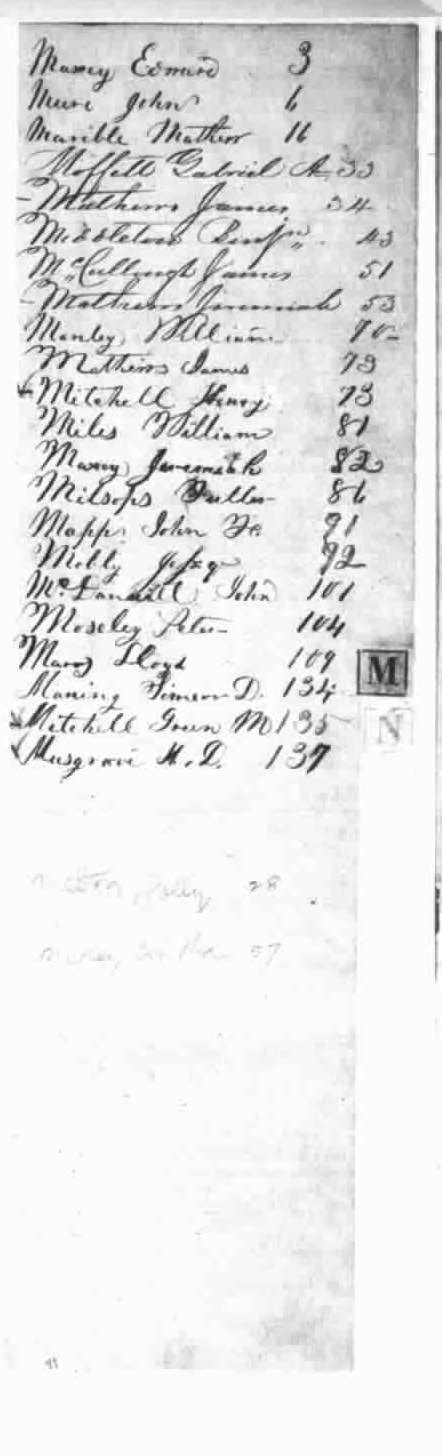 Maxey Edward 3
Mure John 6
Marible Mathew 16
Moffett Gabriel A 33
- Mathews James 34
Middleton Benjn. 43
McCullough James 51
- Mathews Jeremiah 53
Manley William 70
Mathews James 73
Mitchell Henry 73
Miles William 81
Maxey Jeremiah 82
Milsops Fuller 86
Mapp John 91
Mobly 92
McDaniell John 101
Moseley Peter 104
Lloyd 109
Maning Simeon D. 134
Mitchell Green M 135
Musgrove H. D. 137
M
N
28
57